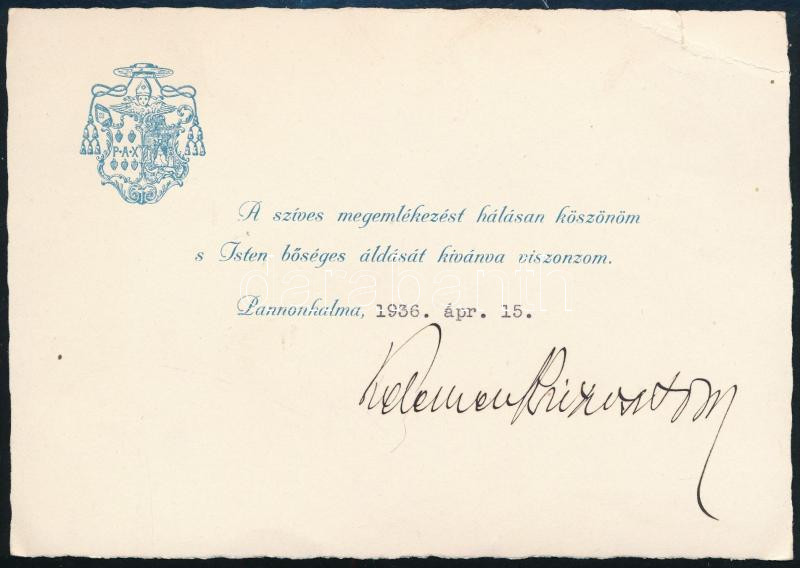 P·A·X
A szíves megemlékezést hálásan köszönöm
s Isten bőséges áldását kivánva viszonzom.
Pannonhalma, 1936. ápr. 15.
Kelemen Krizosztom
darabanth